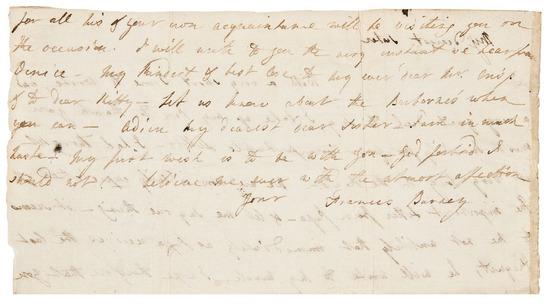 for all his & your own acquaintance will be visiting you on
the occasion. I will write to you the very instant we hear from
Venice – my kindest & best love to my ever dear Mr. Crisp
& to dear Kitty – let us know about the Burbornes when
you can – adieu my dearest dear Sister I am in much
haste – my first wish is to be with you – God forbid I
should not! believe me, ever with the utmost affection
Your Frances Burney